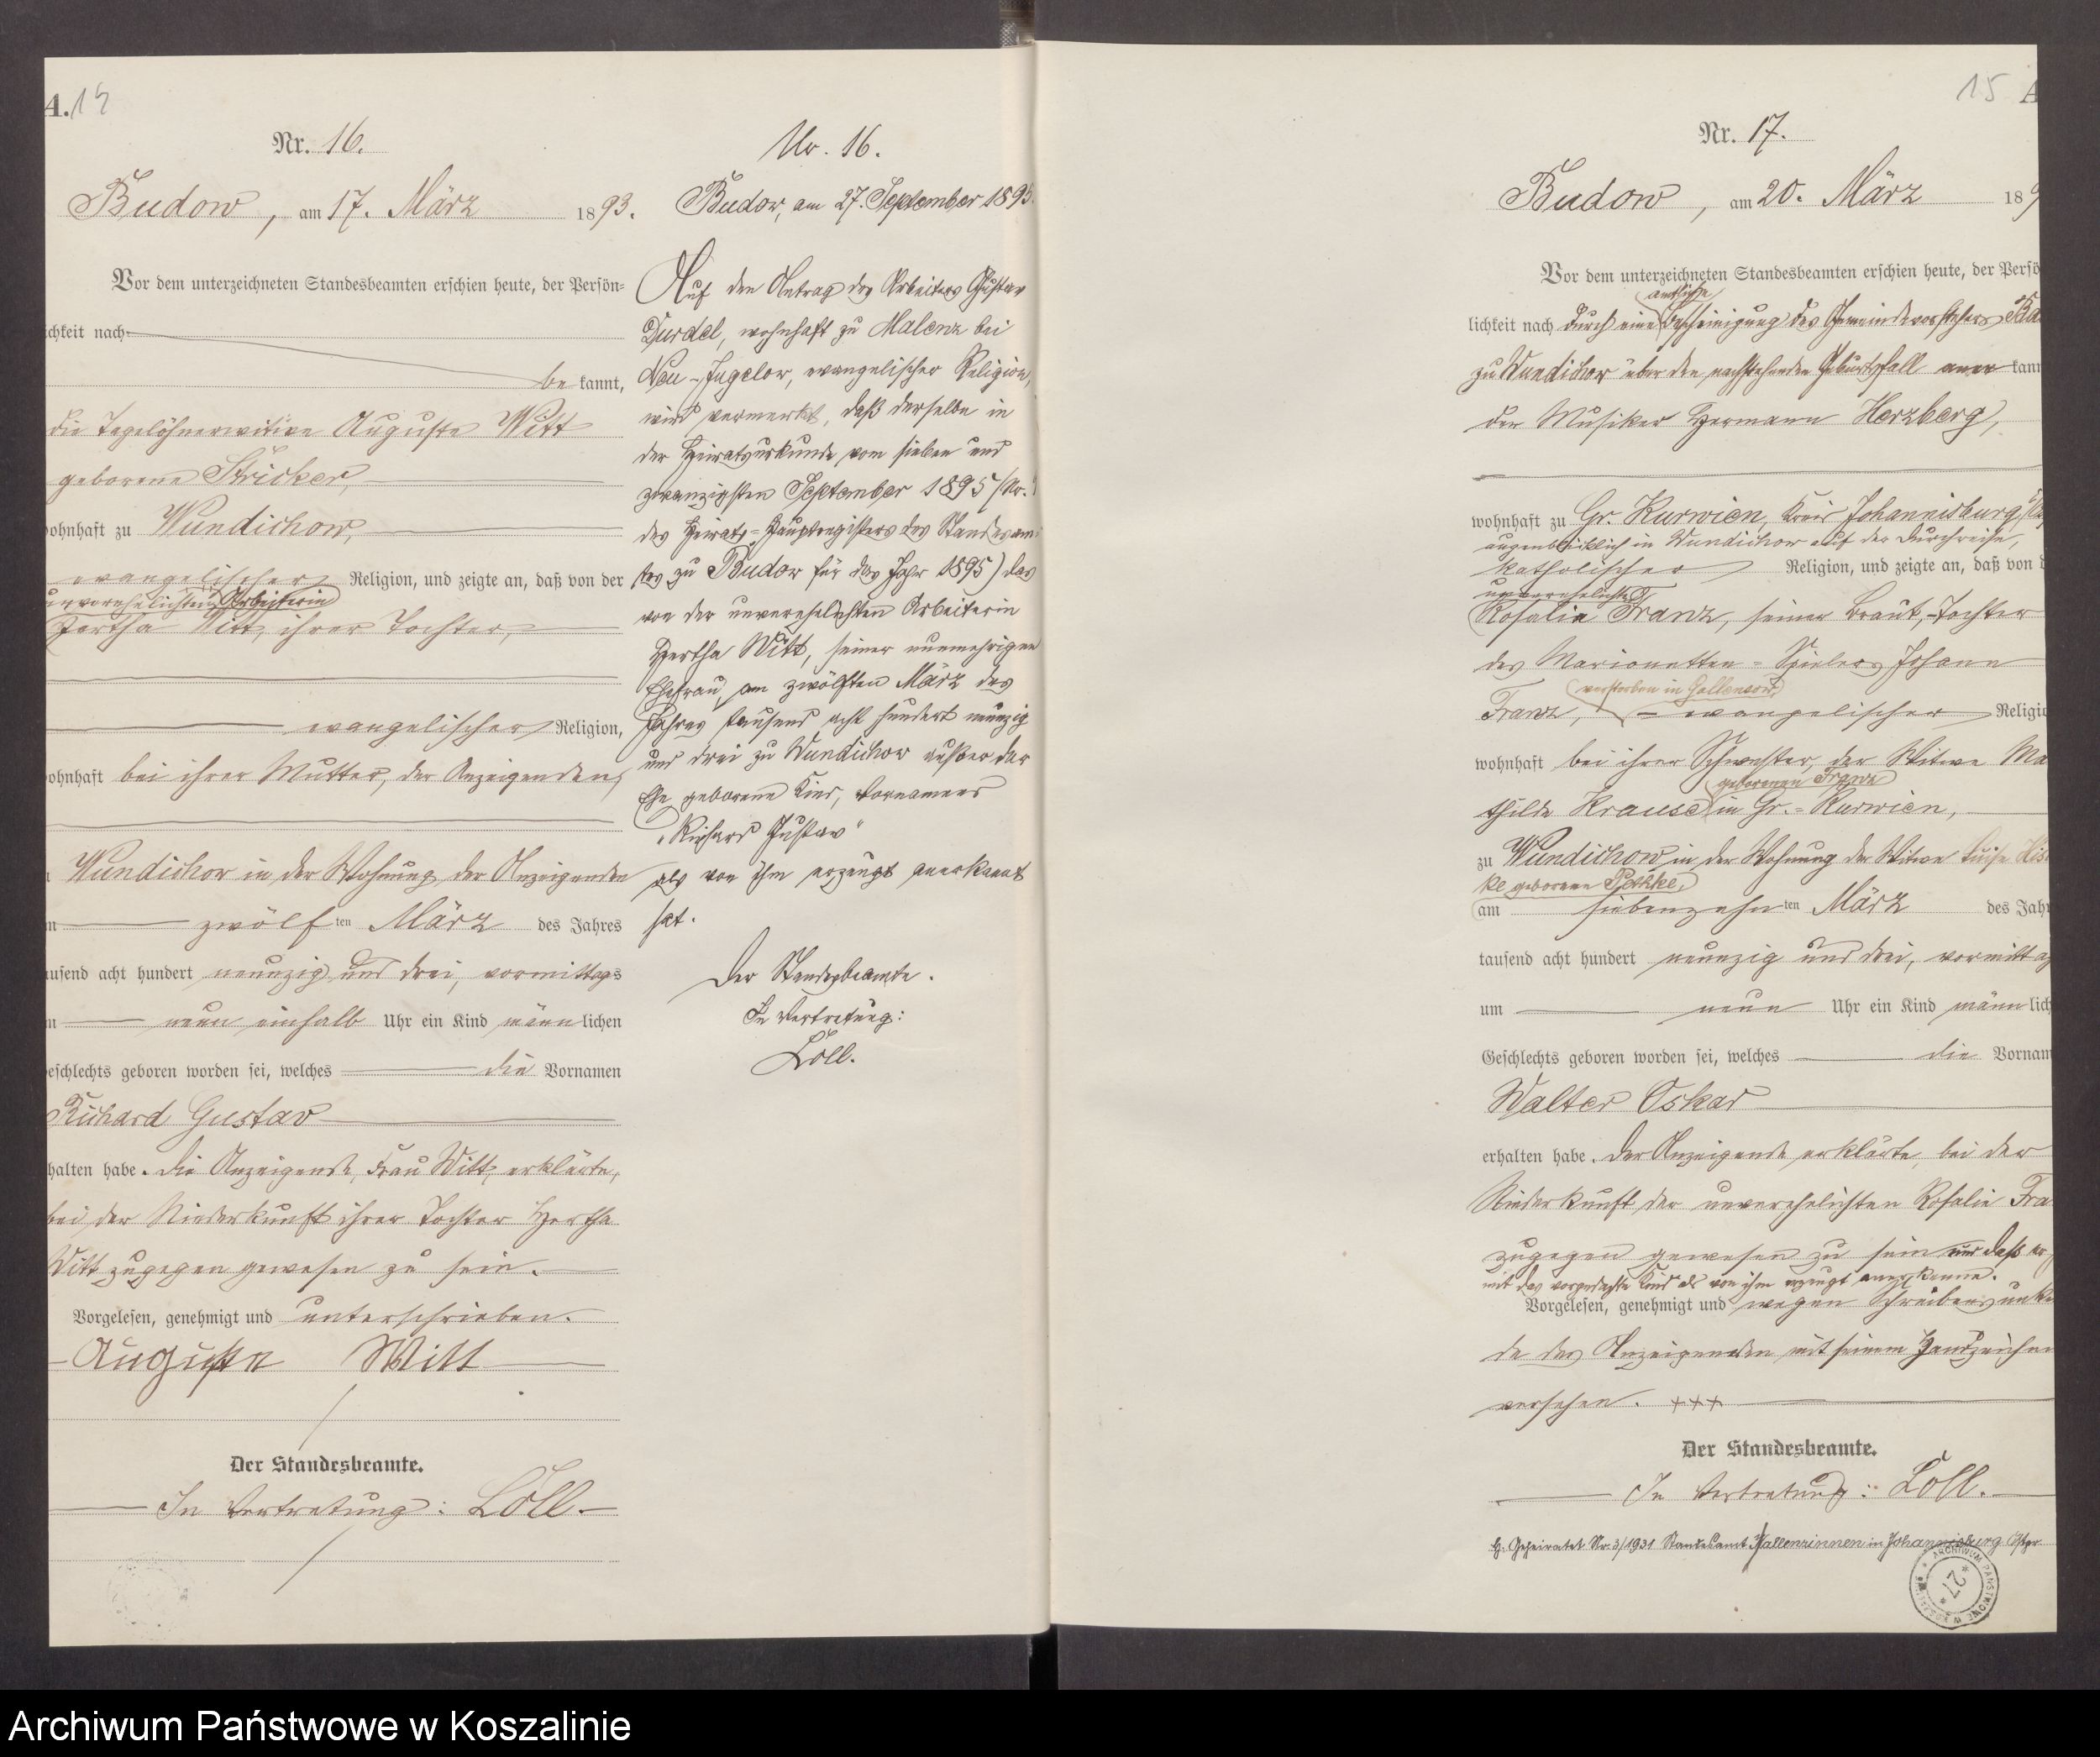 A. 14
Nr. 16.
Budow, am 17. März 1893.
Vor dem unterzeichneten Standesbeamten erschien heute, der Persön=
ichkeit nach
be kannt,
die Tagelöhnerwitwe Auguste Witt
geborene Stricker,
wohnhaft zu Wundichow,
evangelischer Religion, und zeigte an, daß von der
unverehelichten Arbeiterin
Hertha Witt, ihrer Tochter,
evangelischer Religion,
wohnhaft bei ihrer Mutter, der Anzeigenden,
Wundichow in der Wohnung der Anzeigenden
zwölf ten März des Jahres
ausend acht hundert neunzig und drei, vormittags
neun einhalb Uhr ein Kind männ lichen
eschlechts geboren worden sei, welches die Vornamen
Richard Gustav
halten habe. Die Anzeigende, Frau Witt, erklärte,
bei der Niederkunft ihrer Tochter Hertha
Witt zugegen gewesen zu sein.
Vorgelesen, genehmigt und unterschrieben.
Auguste Witt
Der Standesbeamte.
In Vertretung: Löll.
Nr. 16.
Budow, am 27. September 1895.
Auf den Antrag des Arbeiters Gustav
Durdel, wohnhaft zu Malenz bei
Neu-Jugelow, evangelischer Religion,
wird vermerkt, daß derselbe in
der Heiratsurkunde vom sieben und
zwanzigsten September 1895 (Nr.
des Heirats=Hauptregisters des Standesam
tes zu Budow für das Jahr 1895) das
von der unverehelichten Arbeiterin
Hertha Witt, seiner nunmehrigen
Ehefrau, am zwölften März des
Jahres tausend acht hundert neunzig
und drei zu Wundichow außer der
Ehe geborene Kind, Vornamens
„Richard Gustav“
als von ihm erzeugt anerkannt
hat.
Der Standesbeamte.
In Vertretung:
Löll.
15 A
Nr. 17.
Budow, am 20. März 189
Vor dem unterzeichneten Standesbeamten erschien heute, der Persö
amtliche
lichkeit nach durch eine Bescheinigung des Gemeindevorstehers
zu Wundichow über den nachstehenden Geburtsfall aner kann
der Musiker Hermann Herzberg,
wohnhaft zu Gr. Kurwien, Kreis Johannisburg,
augenblicklich in Wundichow auf der Durchreise,
katholischer Religion, und zeigte an, daß von d
unverehelichte
Rosalie Franz, seiner Braut, Tochter
des Marionetten=Spielers Johann
(verstorben in Gallensow)
Franz, evangelischer Religio
wohnhaft bei ihrer Schwester, der Witwe Ma
geborenen Franz
thilde Krause in Gr.=Kurwien,
zu Wundichow in der Wohnung der Witwe Luise
ke geborene Pethke,
am siebenzehn ten März des Jah
tausend acht hundert neunzig und drei, vormittag
um neun Uhr ein Kind männ lich
Geschlechts geboren worden sei, welches die Vornam
Walter Oskar
erhalten habe. Der Anzeigende erklärte, bei der
Niederkunft der unverehelichten Rosalie Fra
zugegen gewesen zu sein und daß er
mit das vorgedachte Kind als von ihm erzeugt anerkenne.
Vorgelesen, genehmigt und wegen Schreibensunkun
de des Anzeigenden mit seinem Handzeichen
versehen. +++
Der Standesbeamte.
In Vertretung: Löll.
Geheiratet Nr. 3/1931 Standesamt Fallenrinnen in Johannisburg Ostpr
ARCHIWUM PAŃSTWOWE W KOSZALINIE
* 27 *
Archiwum Państwowe w Koszalinie